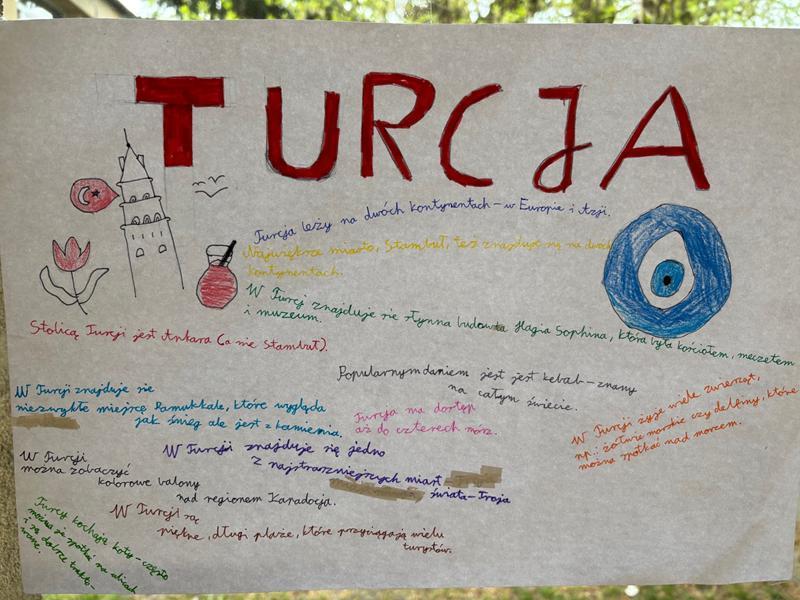 TURCJA
Turcja leży na dwóch kontynentach - w Europie i Azji.
Największe miasto, Stambuł, też znajduje się na dwóch
kontynentach.
W Turcji znajduje się słynna budowla Hagia Sophina, która była kościołem, meczetem
i muzeum.
Stolicą Turcji jest Ankara (a nie Stambuł).
Popularnym daniem jest jest kebab - znany
na całym świecie.
W Turcji znajduje się
niezwykłe miejsce Pamukkale, które wygląda
jak śnieg ale jest z kamienia.
Turcja ma dostęp
aż do czterech mórz.
W Turcji żyje wiele zwierząt,
np.: żółwie morskie czy delfiny, które
można spotkać nad morzem.
W Turcji znajduje się jedno
z najstarszniejszych miast
świata - Troja
W Turcji
można zobaczyć
kolorowe balony
nad regionem Kapadocja.
W Turcji są
piękne, długi plaże, które przyciągają wielu
turystów.
Turcy kochają koty - często
można je spotkać na ulicach
i są dobrze trakto-
wane.